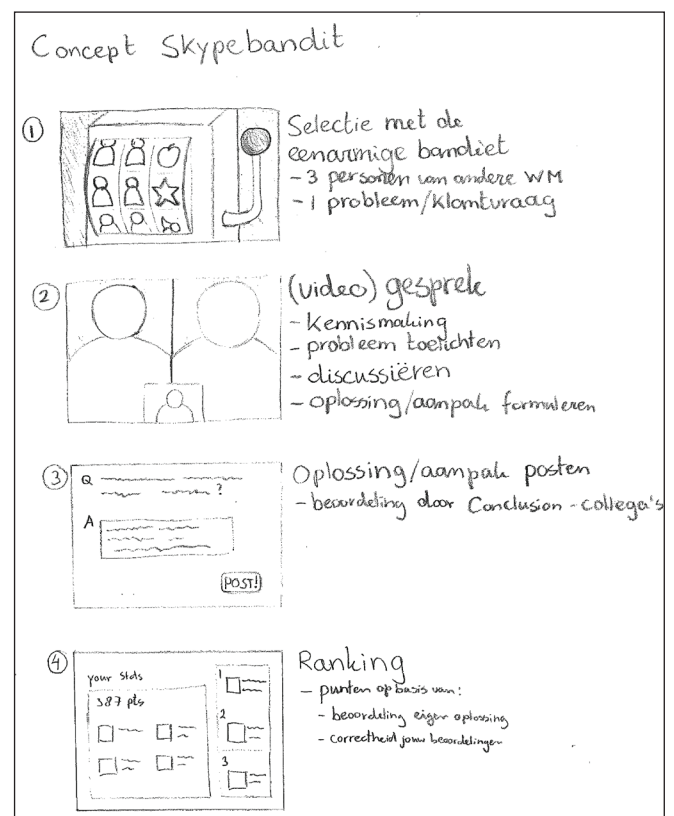 Concept Skypebandit
1
Selectie met de
eenarmige bandiet
- 3 personen van andere WM
- 1 probleem/klantvraag
2
(video) gesprek
- kennismaking
- probleem toelichten
- discussiëren
- oplossing/aanpak formuleren
3
Q ?
A
POST!
Oplossing/aanpak posten
- beoordeling door Conclusion-collega's
4
your stats
387 pts
1
2
3
Ranking
- punten op basis van:
- beoordeling eigen oplossing
- correctheid jouw beoordelingen